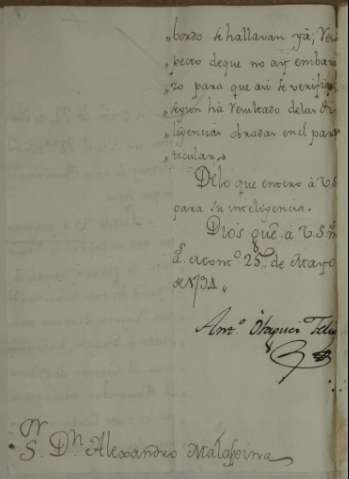 „bordo se hallavan yà, Res
„pecto de que no ay embara
„zo para que asi se verifiq
„segun hà resultado de las di
„ligencias obradas en el par
„ticular„
Delo que entero à V.S.
para su inteligencia.
Dios gue. à V.S. m
a. 25. de Mayo
de
Anto. Vazquez
Sor. Dn. Alexandro Malaspina